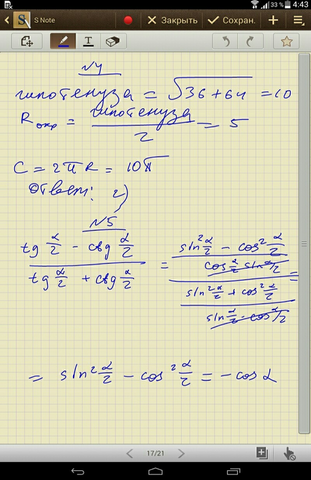 33 % 4:43
S Note
Закрыть Сохран.
N4
гипотенуза = √36+64 = 10
Rокр = гипотенуза/2 = 5
C = 2πR = 10π
Ответ: 2)
N5
(tg α/2 - ctg α/2)/(tg α/2 + ctg α/2) = ((sin² α/2 - cos² α/2)/(cos α/2 sin α/2))/((sin² α/2 + cos² α/2)/(sin α/2 · cos α/2)) =
= sin² α/2 - cos² α/2 = - cos α
17/21